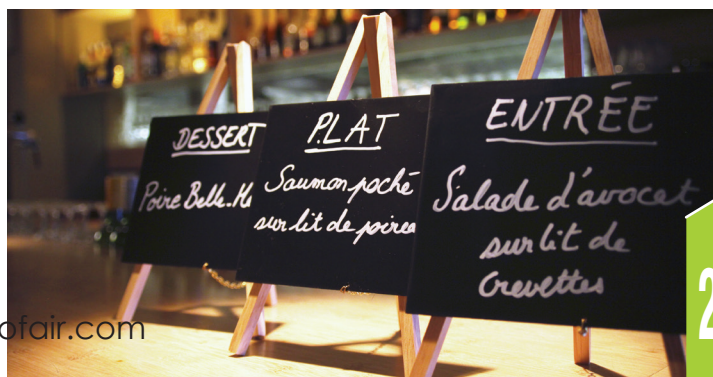 DESSERT
Poire Belle-
PLAT
Saumon poché
sur lit de
ENTRÉE
Salade d'avocat
sur lit de
Crevettes
ofair.com
2